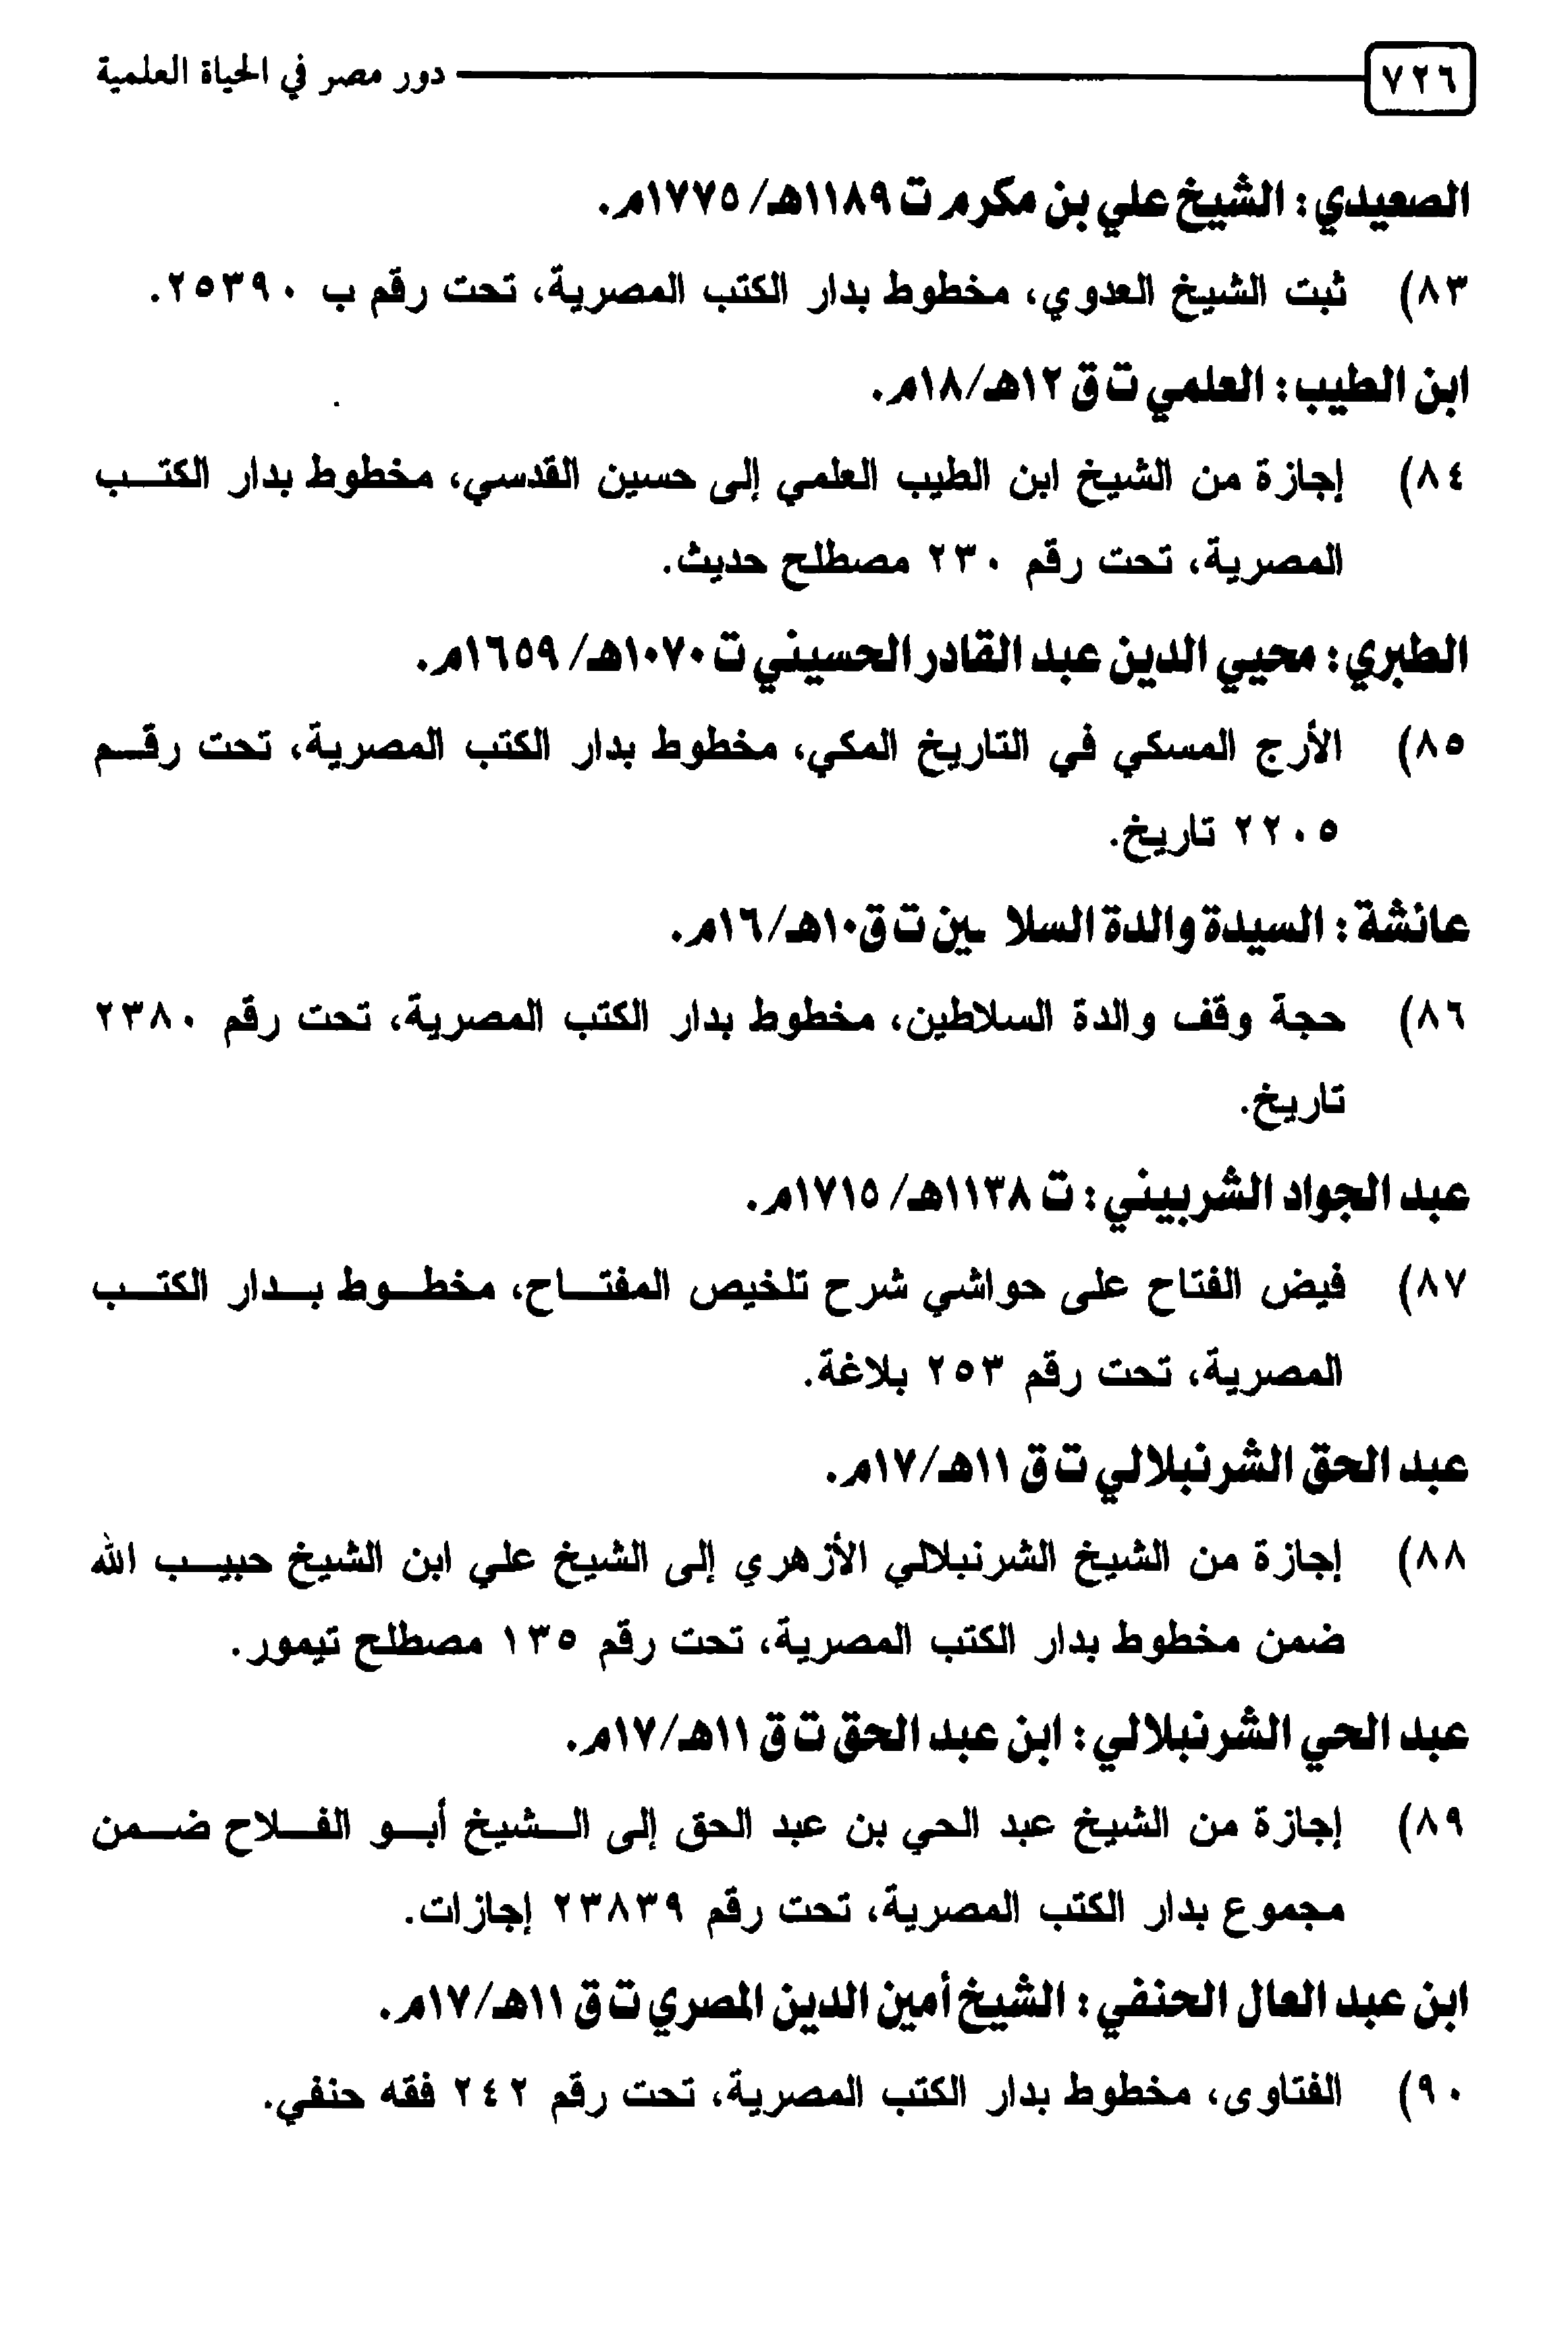 ٧٢٦ دور مصر في الحياة العلمية
الصعيدي: الشيخ علي بن مكرم ت ١١٨٩هـ/ ١٧٧٥م.
٨٣) ثبت الشيخ العدوي، مخطوط بدار الكتب المصرية، تحت رقم ب ٢٥٣٩٠.
ابن الطيب: العلمي ت ق ١٢هـ/١٨م.
٨٤) إجازة من الشيخ ابن الطيب العلمي إلى حسين القدسي، مخطوط بدار الكتب
المصرية، تحت رقم ٢٣٠ مصطلح حديث.
الطبري: محيي الدين عبد القادر الحسيني ت ١٠٧٠هـ/ ١٦٥٩م.
٨٥) الأرج المسكي في التاريخ المكي، مخطوط بدار الكتب المصرية، تحت رقم
٢٢٠٥ تاريخ.
عائشة: السيدة والدة السلا ين ت ق١٠هـ/١٦م.
٨٦) حجة وقف والدة السلاطين، مخطوط بدار الكتب المصرية، تحت رقم ٢٣٨٠
تاريخ.
عبد الجواد الشربيني: ت ١١٣٨هـ/ ١٧١٥م.
٨٧) فيض الفتاح على حواشي شرح تلخيص المفتاح، مخطوط بدار الكتب
المصرية، تحت رقم ٢٥٣ بلاغة.
عبد الحق الشرنبلالي ت ق ١١هـ/١٧م.
٨٨) إجازة من الشيخ الشرنبلالي الأزهري إلى الشيخ علي ابن الشيخ حبيب الله
ضمن مخطوط بدار الكتب المصرية، تحت رقم ١٣٥ مصطلح تيمور.
عبد الحي الشرنبلالي: ابن عبد الحق ت ق ١١هـ/١٧م.
٨٩) إجازة من الشيخ عبد الحي بن عبد الحق إلى الشيخ أبو الفلاح ضمن
مجموع بدار الكتب المصرية، تحت رقم ٢٣٨٣٩ إجازات.
ابن عبد العال الحنفي: الشيخ أمين الدين المصري ت ق ١١هـ/١٧م.
٩٠) الفتاوى، مخطوط بدار الكتب المصرية، تحت رقم ٢٤٢ فقه حنفي.